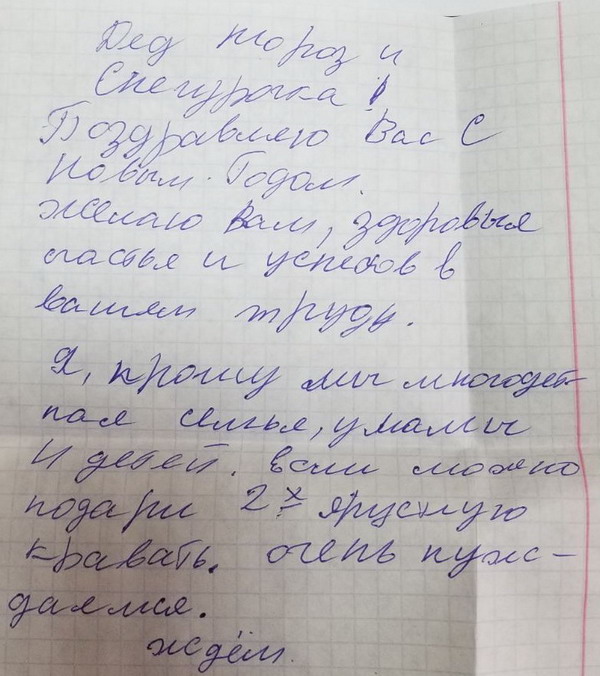 Дед Мороз и
Снегурочка!
Поздравляю Вас С
Новым Годом.
желаю Вам, здоровья
счастья и успехов в
вашем труду.
Я, прошу мы многодет-
ная семья, у мамы
4 детей. если можно
подари 2х ярусную
кравать. очень нуж-
даемся.
ждём.